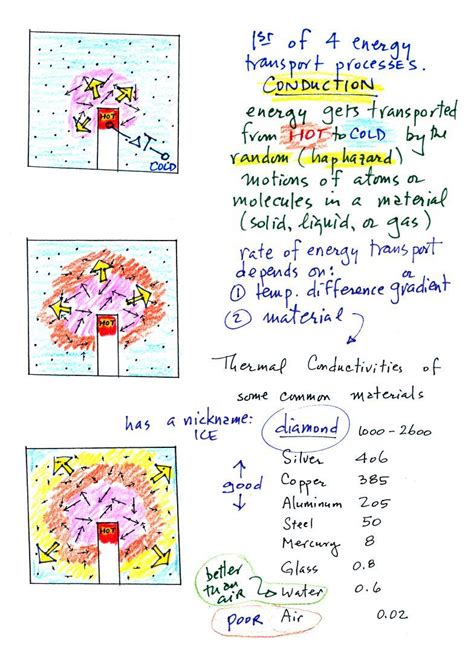 1st of 4 energy
transport processes.
CONDUCTION
energy gets transported
from HOT to COLD by the
random (haphazard)
motions of atoms or
molecules in a material
(solid, liquid, or gas)
HOT
ΔT
COLD
rate of energy transport
depends on:
① temp. difference or gradient
② material
HOT
Thermal Conductivities of
some common materials
has a nickname:
ICE
diamond 1000-2600
Silver 406
good
Copper 385
Aluminum 205
Steel 50
Mercury 8
Glass 0.8
better
than
air
Water 0.6
POOR Air 0.02
HOT